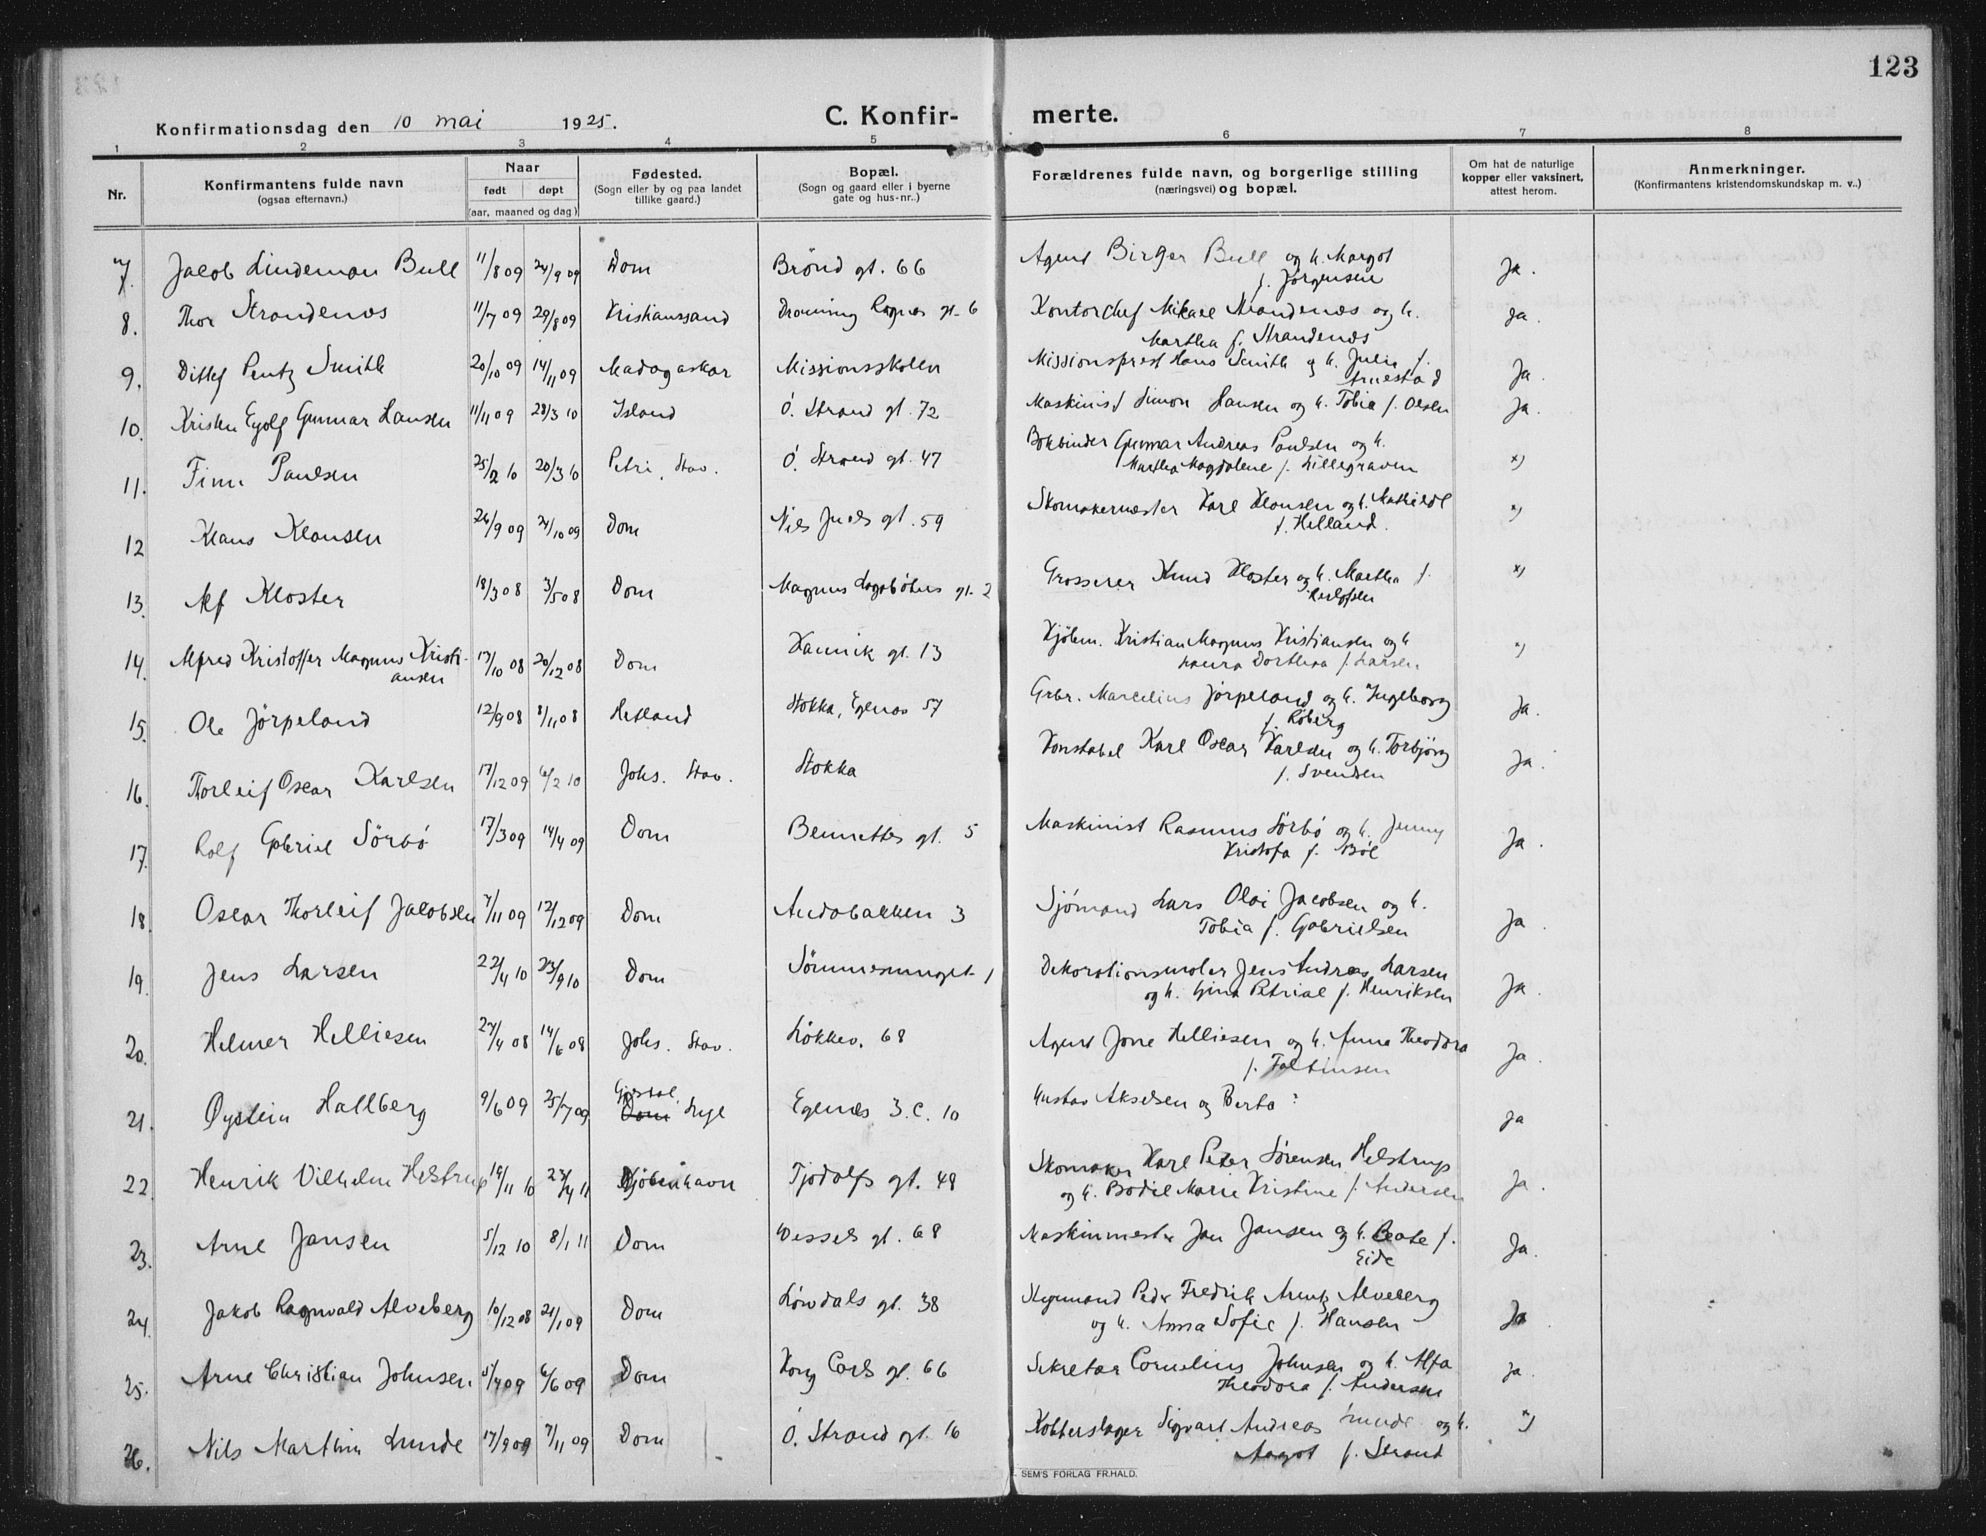 123
Konfirmationsdag den 10 mai 1925.
C. Konfir- merte.
1 2 3 4 5 6 7 8
Nr.
Konfirmantens fulde navn
(ogsaa efternavn.)
Naar
født døpt
(aar, maaned og dag)
Fødested.
(Sogn eller by og paa landet
tillike gaard.)
Bopæl.
(Sogn og gaard eller i byerne
gate og hus-nr..)
Forældrenes fulde navn, og borgerlige stilling
(næringsvei) og bopæl.
Om hat de naturlige
kopper eller vaksinert,
attest herom.
Anmerkninger.
(Konfirmantens kristendomskundskap m. v..)
7. Jacob Lindeman Bull 11/8 09 24/9 09 Dom Brønd gt. 66 Agent Birger Bull og h. Margot
f. Jørgensen Ja.
8. Thor Strandenæs 11/7 09 29/8 09 Kristianssand Dronning Ragnas gt. 6 Kontorchef Mikael Strandenæs og h.
Martha f. Strandenæs Ja.
9. Ditlef Pentz Smith 20/10 09 14/11 09 Madagaskar Missionsskolen Missionsprest Hans Smith og h. Julie f.
Arnestad Ja.
10. Kristen Eyolf Gunnar Hansen 11/11 09 28/3 10 Island Ö. Strand gt. 72 Maskinist Simon Hansen og h. Tobia f. Olsen Ja.
11. Finn Paulsen 25/2 10 20/3 10 Petri, Stav. Ö. Strand gt. 47 Bokbinder Gunnar Andreas Paulsen og h.
Martha Magdalene f. Lillegraven x)
12 Klaus Klausen 26/9 09 24/10 09 Dom Niels Juels gt. 59 Skomakermester Karl Klausen og h. Mathilde
f. Helland. x)
13. Alf Kloster 18/3 08 3/5 08 Dom Magnus Lagabøters gt. 2 Grosserer Knud Kloster og h. Martha f.
x)
14. Alfred Kristoffer Magnus Kristi-
ansen 17/10 08 20/12 08 Dom Kannik gt. 13 Kjöbm. Kristian Magnus Kristiansen og h
Laura Dorthea f. Larsen x)
15. Ole Jörpeland 12/9 08 8/11 08 Hetland Stokka, Egenæs 57 Grbr. Marcelius Jörpeland og h. Ingeborg
f. Röberg Ja.
16. Thorleif Oscar Karlsen 17/12 09 6/2 10 Johs. Stav. Stokka Konstabel Karl Oscar Karlsen og h. Torbjörg
f. Svendsen Ja.
17. Rolf Gabriel Sörbö 17/3 09 14/4 09 Dom Bennetters gt. 5 Maskinist Rasmus Sörbö og h. Jenny
Kristofa f. Böe Ja.
18. Oscar Thorleif Jacobsen 7/11 09 12/12 09 Dom Andabakken 3 Sjömand Lars Olai Jacobsen og h.
Tobia f. Gabrielsen Ja
19. Jens Larsen 22/4 10 23/9 10 Dom Sömmesmuget 1 Dekorationsmaler Jens Andreas Larsen
og h. Gina Petrine f. Henriksen Ja.
20. Helmer Helliesen 27/4 08 14/6 08 Johs. Stav. Løkkev. 68 Agent Jone Helliesen og h. Anna Theodora
f. Faltinsen Ja.
21. Øystein Hallberg 9/6 09 25/7 09 Gjestal,
Dom Lyse Egenæs 3. C. 10 Gustav Akselsen og Berta ? ja
22. Henrik Vilhelm Helstrup 19/11 10 23/4 11 Kjöbenhavn Tjodolfs gt. 49 Skomaker Karl Peter Sörensen Helstrup
og h. Bodil Marie Kristine f. Andersen Ja.
23. Arne Jansen 5/12 10 8/1 11 Dom Wessels gt. 68 Maskinmester Jan Jansen og h. Beate f.
Eide Ja.
24. Jakob Ragnvald Alveberg 10/12 08 24/1 09 Dom Lövdals gt. 38 Styrmand Peder Fredrik Arntz Alveberg
og h. Anna Sofie f. Hansen Ja
25. Arne Christian Johnsen 5/4 09 6/6 09 Dom Kong Carls gt. 66 Sekretær Cornelius Johnsen og h. Alfa
Theodora f. Andersen ja
26. Nils Marthin Lunde 17/9 09 7/11 09 Dom Ö. Strand gt. 16 Kobberslager Sigvart Andreas Lunde og h.
Aagot f. Strand x)
SEM'S FORLAG FR.HALD.